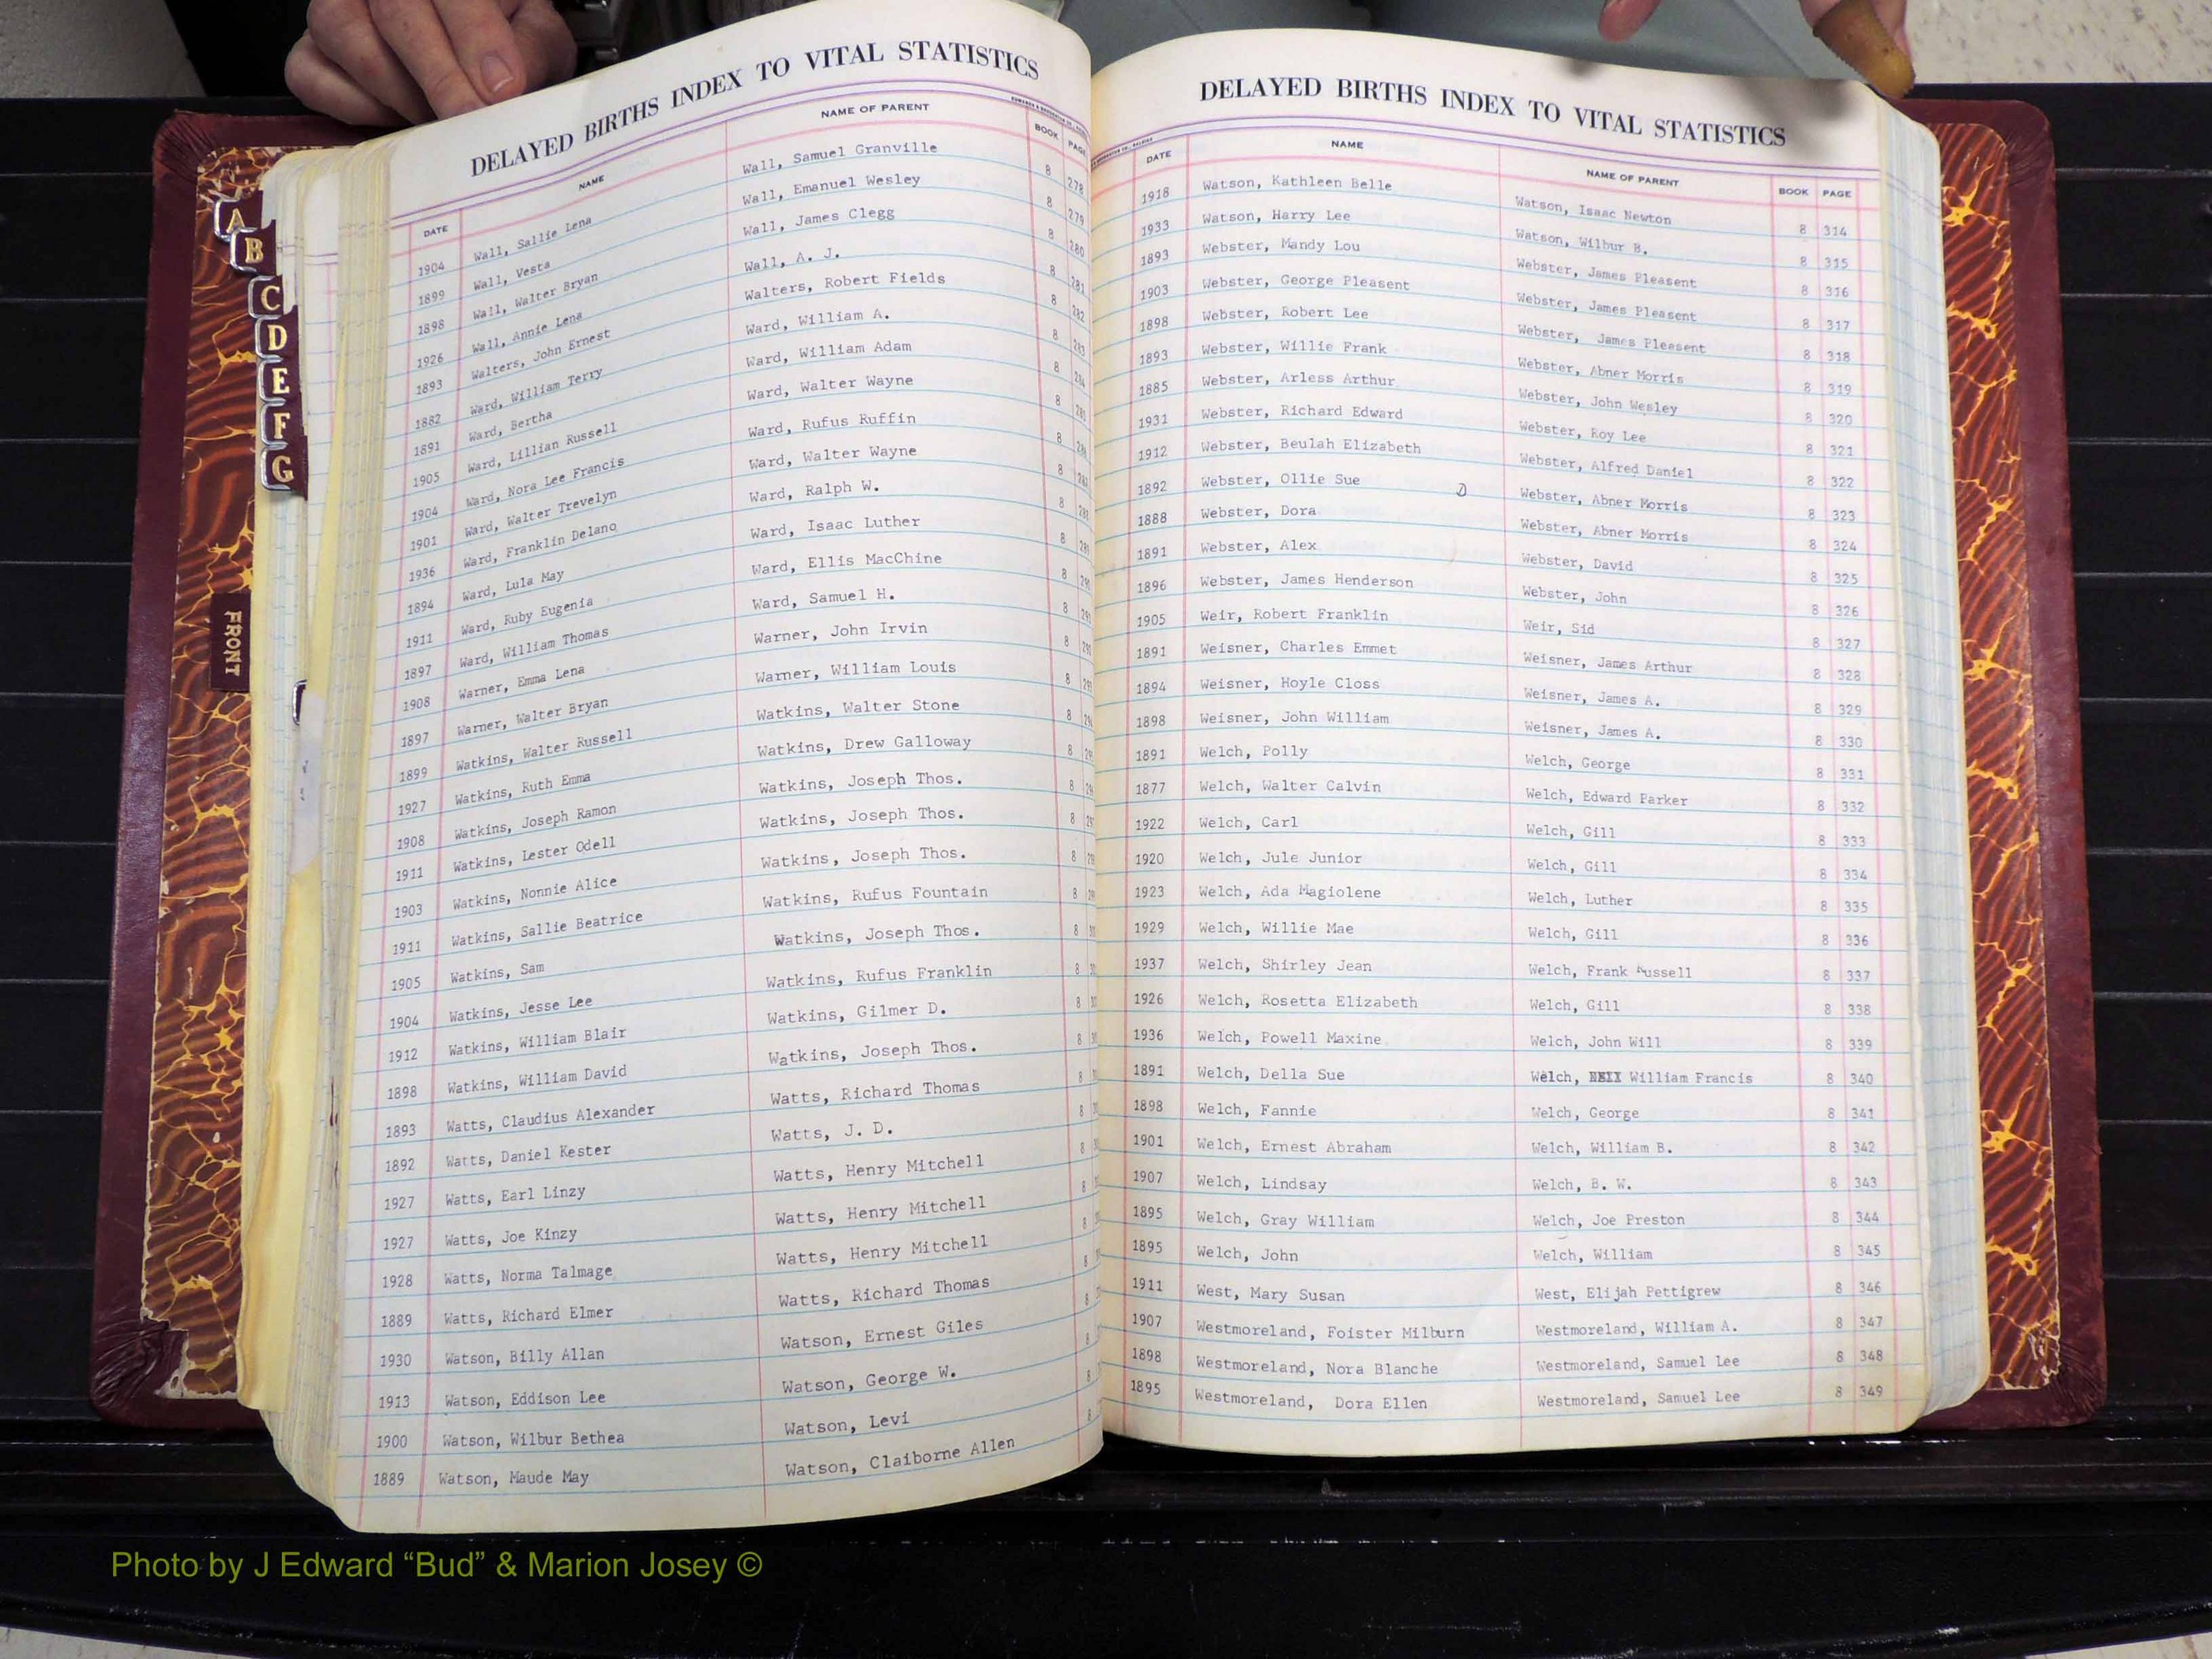 DELAYED BIRTHS INDEX TO VITAL STATISTICS
DATE NAME NAME OF PARENT BOOK PAGE
1904 Wall, Sallie Lena Wall, Samuel Granville 8 278
1899 Wall, Vesta Wall, Emanuel Wesley 8 279
1898 Wall, Walter Bryan Wall, James Clegg 8 280
1926 Wall, Annie Lena Wall, A. J. 8 281
1893 Walters, John Ernest Walters, Robert Fields 8 282
1882 Ward, William Terry Ward, William A. 8 283
1891 Ward, Bertha Ward, William Adam 8 284
1905 Ward, Lillian Russell Ward, Walter Wayne 8
1904 Ward, Nora Lee Francis Ward, Rufus Ruffin 8
1901 Ward, Walter Trevelyn Ward, Walter Wayne 8
1936 Ward, Franklin Delano Ward, Ralph W. 8
1894 Ward, Lula May Ward, Isaac Luther 8
1911 Ward, Ruby Eugenia Ward, Ellis MacChine 8
1897 Ward, William Thomas Ward, Samuel H. 8
1908 Warner, Emma Lena Warner, John Irvin 8
1897 Warner, Walter Bryan Warner, William Louis 8
1899 Watkins, Walter Russell Watkins, Walter Stone 8
1927 Watkins, Ruth Emma Watkins, Drew Galloway 8
1908 Watkins, Joseph Ramon Watkins, Joseph Thos. 8
1911 Watkins, Lester Odell Watkins, Joseph Thos. 8
1903 Watkins, Nonnie Alice Watkins, Joseph Thos. 8
1911 Watkins, Sallie Beatrice Watkins, Rufus Fountain 8
1905 Watkins, Sam Watkins, Joseph Thos. 8
1904 Watkins, Jesse Lee Watkins, Rufus Franklin 8
1912 Watkins, William Blair Watkins, Gilmer D. 8
1898 Watkins, William David Watkins, Joseph Thos. 8
1893 Watts, Claudius Alexander Watts, Richard Thomas 8
1892 Watts, Daniel Kester Watts, J. D. 8
1927 Watts, Earl Linzy Watts, Henry Mitchell 8
1927 Watts, Joe Kinzy Watts, Henry Mitchell 8
1928 Watts, Norma Talmage Watts, Henry Mitchell 8
1889 Watts, Richard Elmer Watts, Richard Thomas 8
1930 Watson, Billy Allan Watson, Ernest Giles 8
1913 Watson, Eddison Lee Watson, George W. 8
1900 Watson, Wilbur Bethea Watson, Levi 8
1889 Watson, Maude May Watson, Claiborne Allen 8
DELAYED BIRTHS INDEX TO VITAL STATISTICS
DATE NAME NAME OF PARENT BOOK PAGE
1918 Watson, Kathleen Belle Watson, Isaac Newton 8 314
1933 Watson, Harry Lee Watson, Wilbur B. 8 315
1893 Webster, Mandy Lou Webster, James Pleasent 8 316
1903 Webster, George Pleasent Webster, James Pleasent 8 317
1898 Webster, Robert Lee Webster, James Pleasent 8 318
1893 Webster, Willie Frank Webster, Abner Morris 8 319
1885 Webster, Arless Arthur Webster, John Wesley 8 320
1931 Webster, Richard Edward Webster, Roy Lee 8 321
1912 Webster, Beulah Elizabeth Webster, Alfred Daniel 8 322
1892 Webster, Ollie Sue D Webster, Abner Morris 8 323
1888 Webster, Dora Webster, Abner Morris 8 324
1891 Webster, Alex Webster, David 8 325
1896 Webster, James Henderson Webster, John 8 326
1905 Weir, Robert Franklin Weir, Sid 8 327
1891 Weisner, Charles Emmet Weisner, James Arthur 8 328
1894 Weisner, Hoyle Closs Weisner, James A. 8 329
1898 Weisner, John William Weisner, James A. 8 330
1891 Welch, Polly Welch, George 8 331
1877 Welch, Walter Calvin Welch, Edward Parker 8 332
1922 Welch, Carl Welch, Gill 8 333
1920 Welch, Jule Junior Welch, Gill 8 334
1923 Welch, Ada Magiolene Welch, Luther 8 335
1929 Welch, Willie Mae Welch, Gill 8 336
1937 Welch, Shirley Jean Welch, Frank Russell 8 337
1926 Welch, Rosetta Elizabeth Welch, Gill 8 338
1936 Welch, Powell Maxine Welch, John Will 8 339
1891 Welch, Della Sue Welch, William Francis 8 340
1898 Welch, Fannie Welch, George 8 341
1901 Welch, Ernest Abraham Welch, William B. 8 342
1907 Welch, Lindsay Welch, B. W. 8 343
1895 Welch, Gray William Welch, Joe Preston 8 344
1895 Welch, John Welch, William 8 345
1911 West, Mary Susan West, Elijah Pettigrew 8 346
1907 Westmoreland, Foister Milburn Westmoreland, William A. 8 347
1898 Westmoreland, Nora Blanche Westmoreland, Samuel Lee 8 348
1895 Westmoreland, Dora Ellen Westmoreland, Samuel Lee 8 349
A
B
C
D
E
F
G
FRONT
Photo by J Edward “Bud” & Marion Josey ©